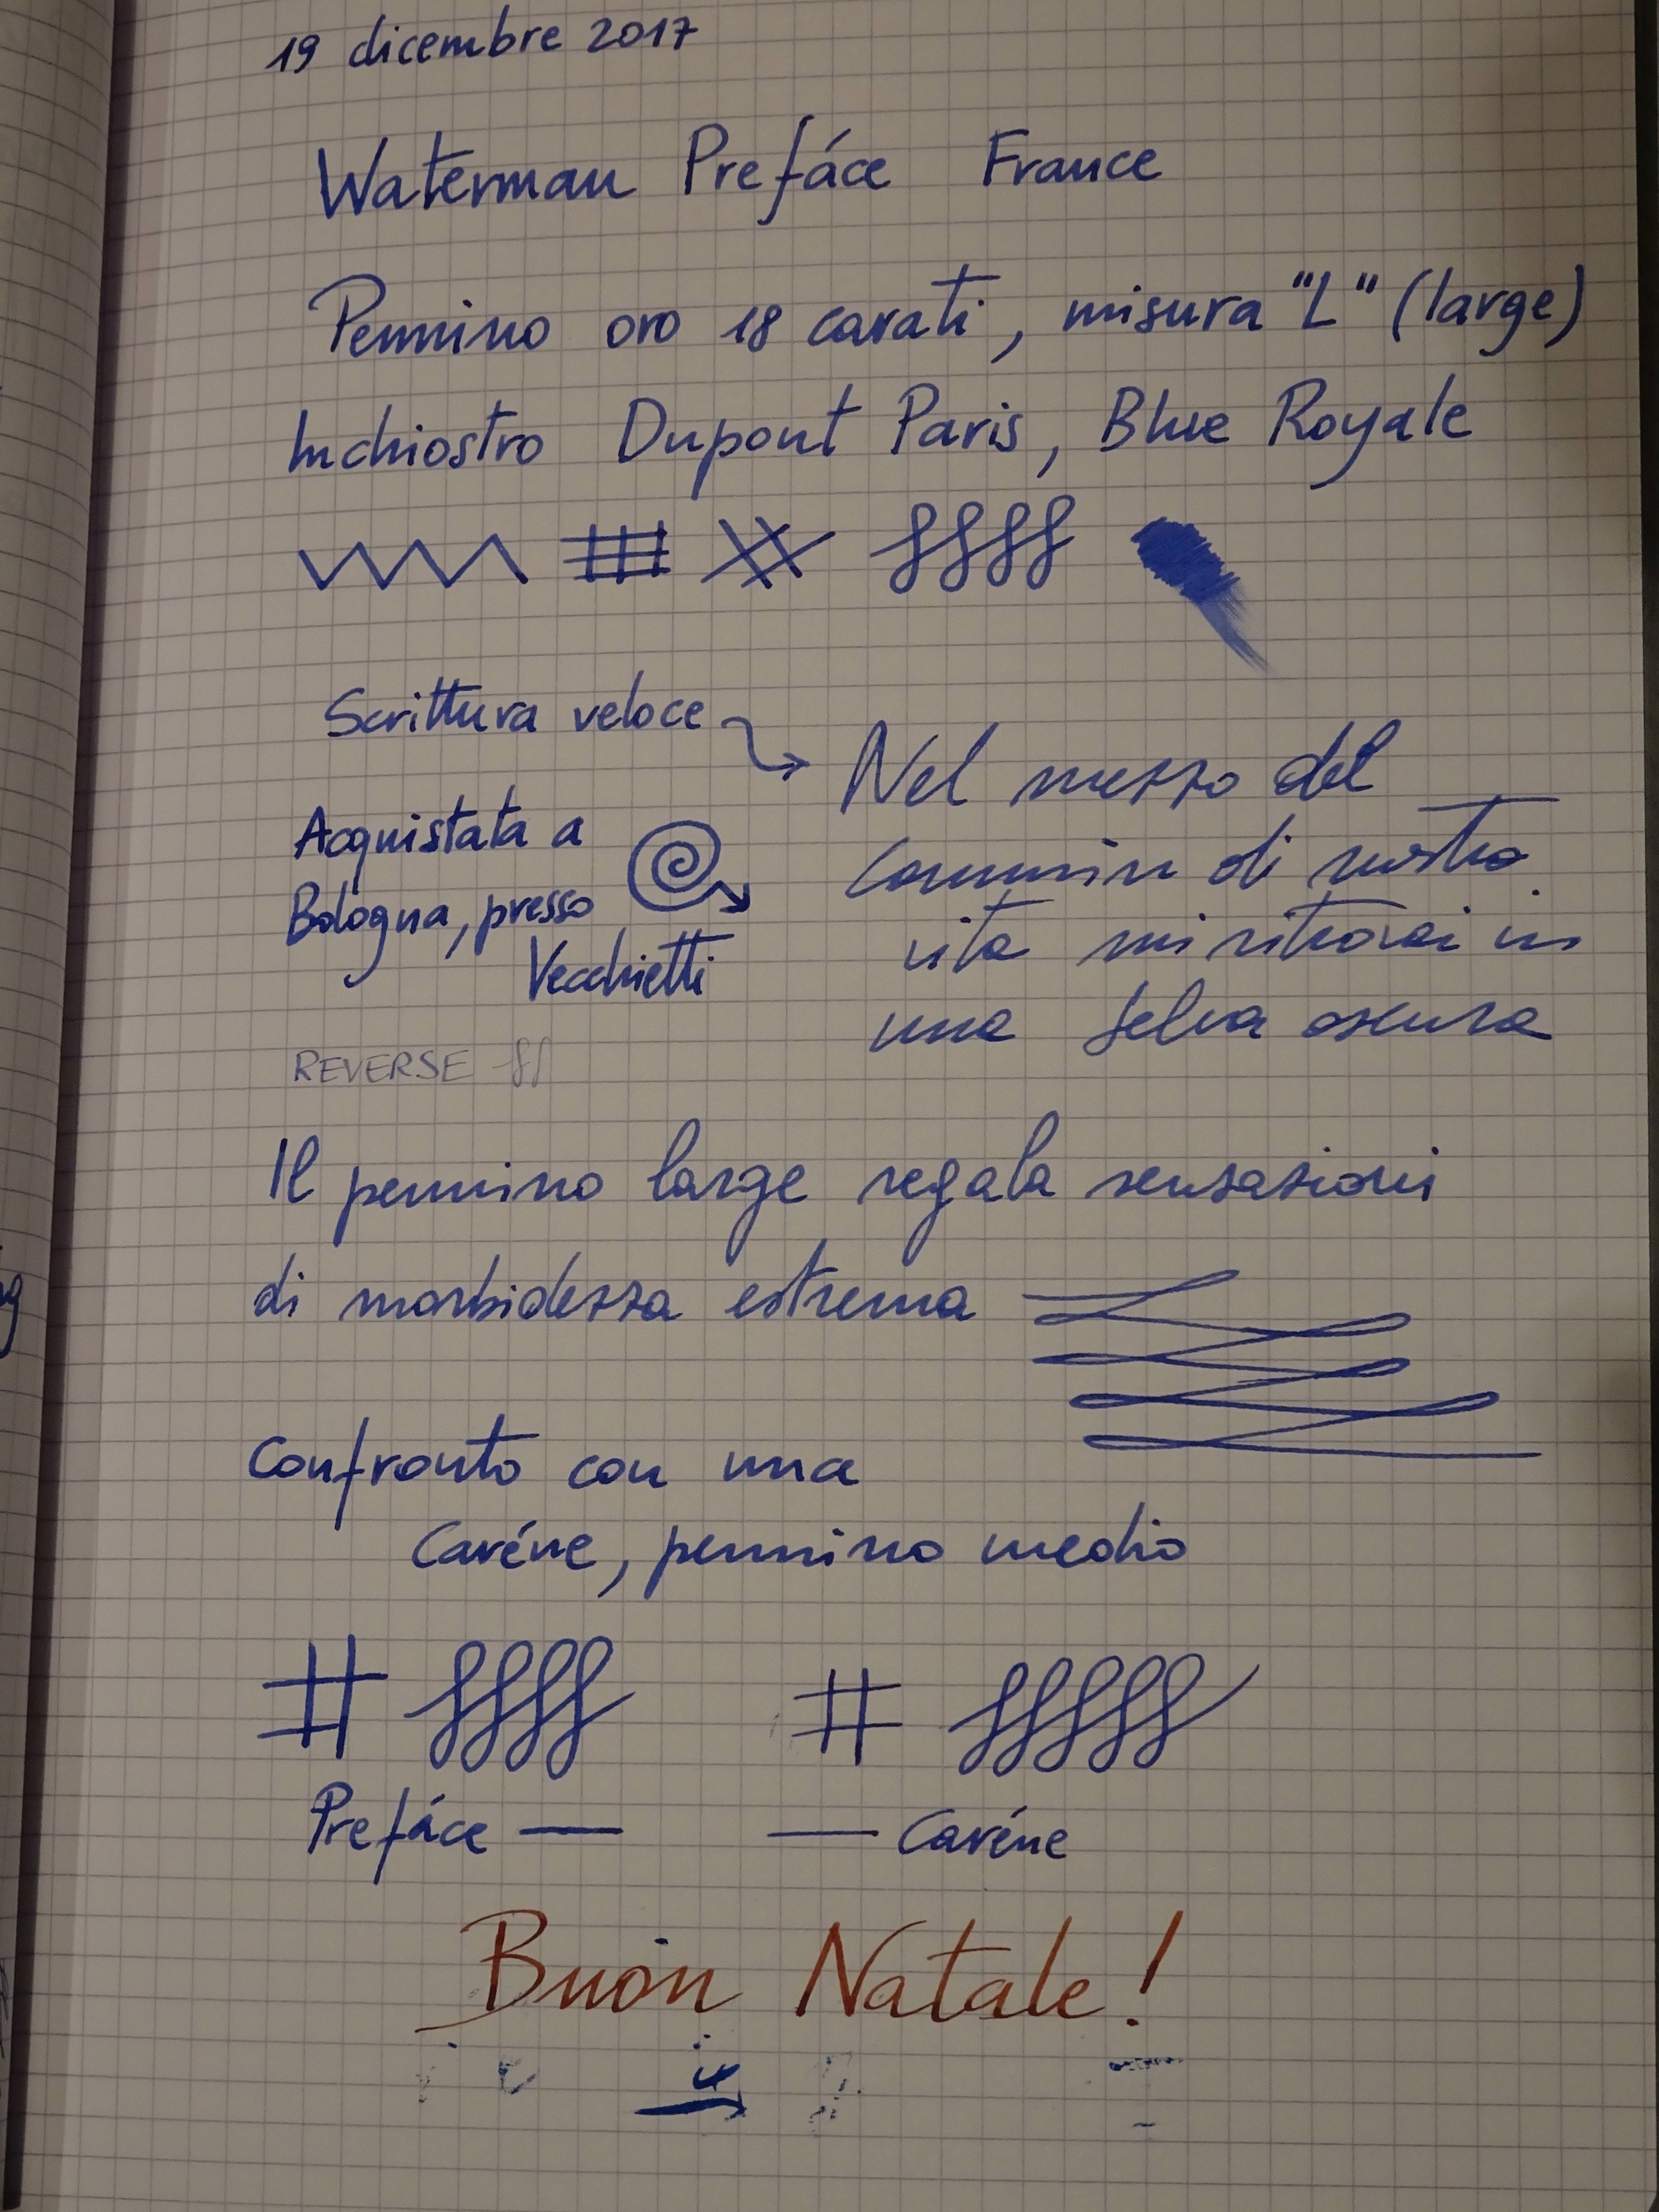 19 dicembre 2017
Waterman Prefáce France
Pennino oro 18 carati, misura "L" (large)
Inchiostro Dupont Paris, Blue Royale
Scrittura veloce
Nel mezzo del
cammin di nostra
vita mi ritrovai in
una selva oscura
Acquistata a
Bologna, presso
Vecchietti
REVERSE
Il pennino large regala sensazioni
di morbidezza estrema
Confronto con una
Caréne, pennino medio
Prefáce — — Caréne
Buon Natale!